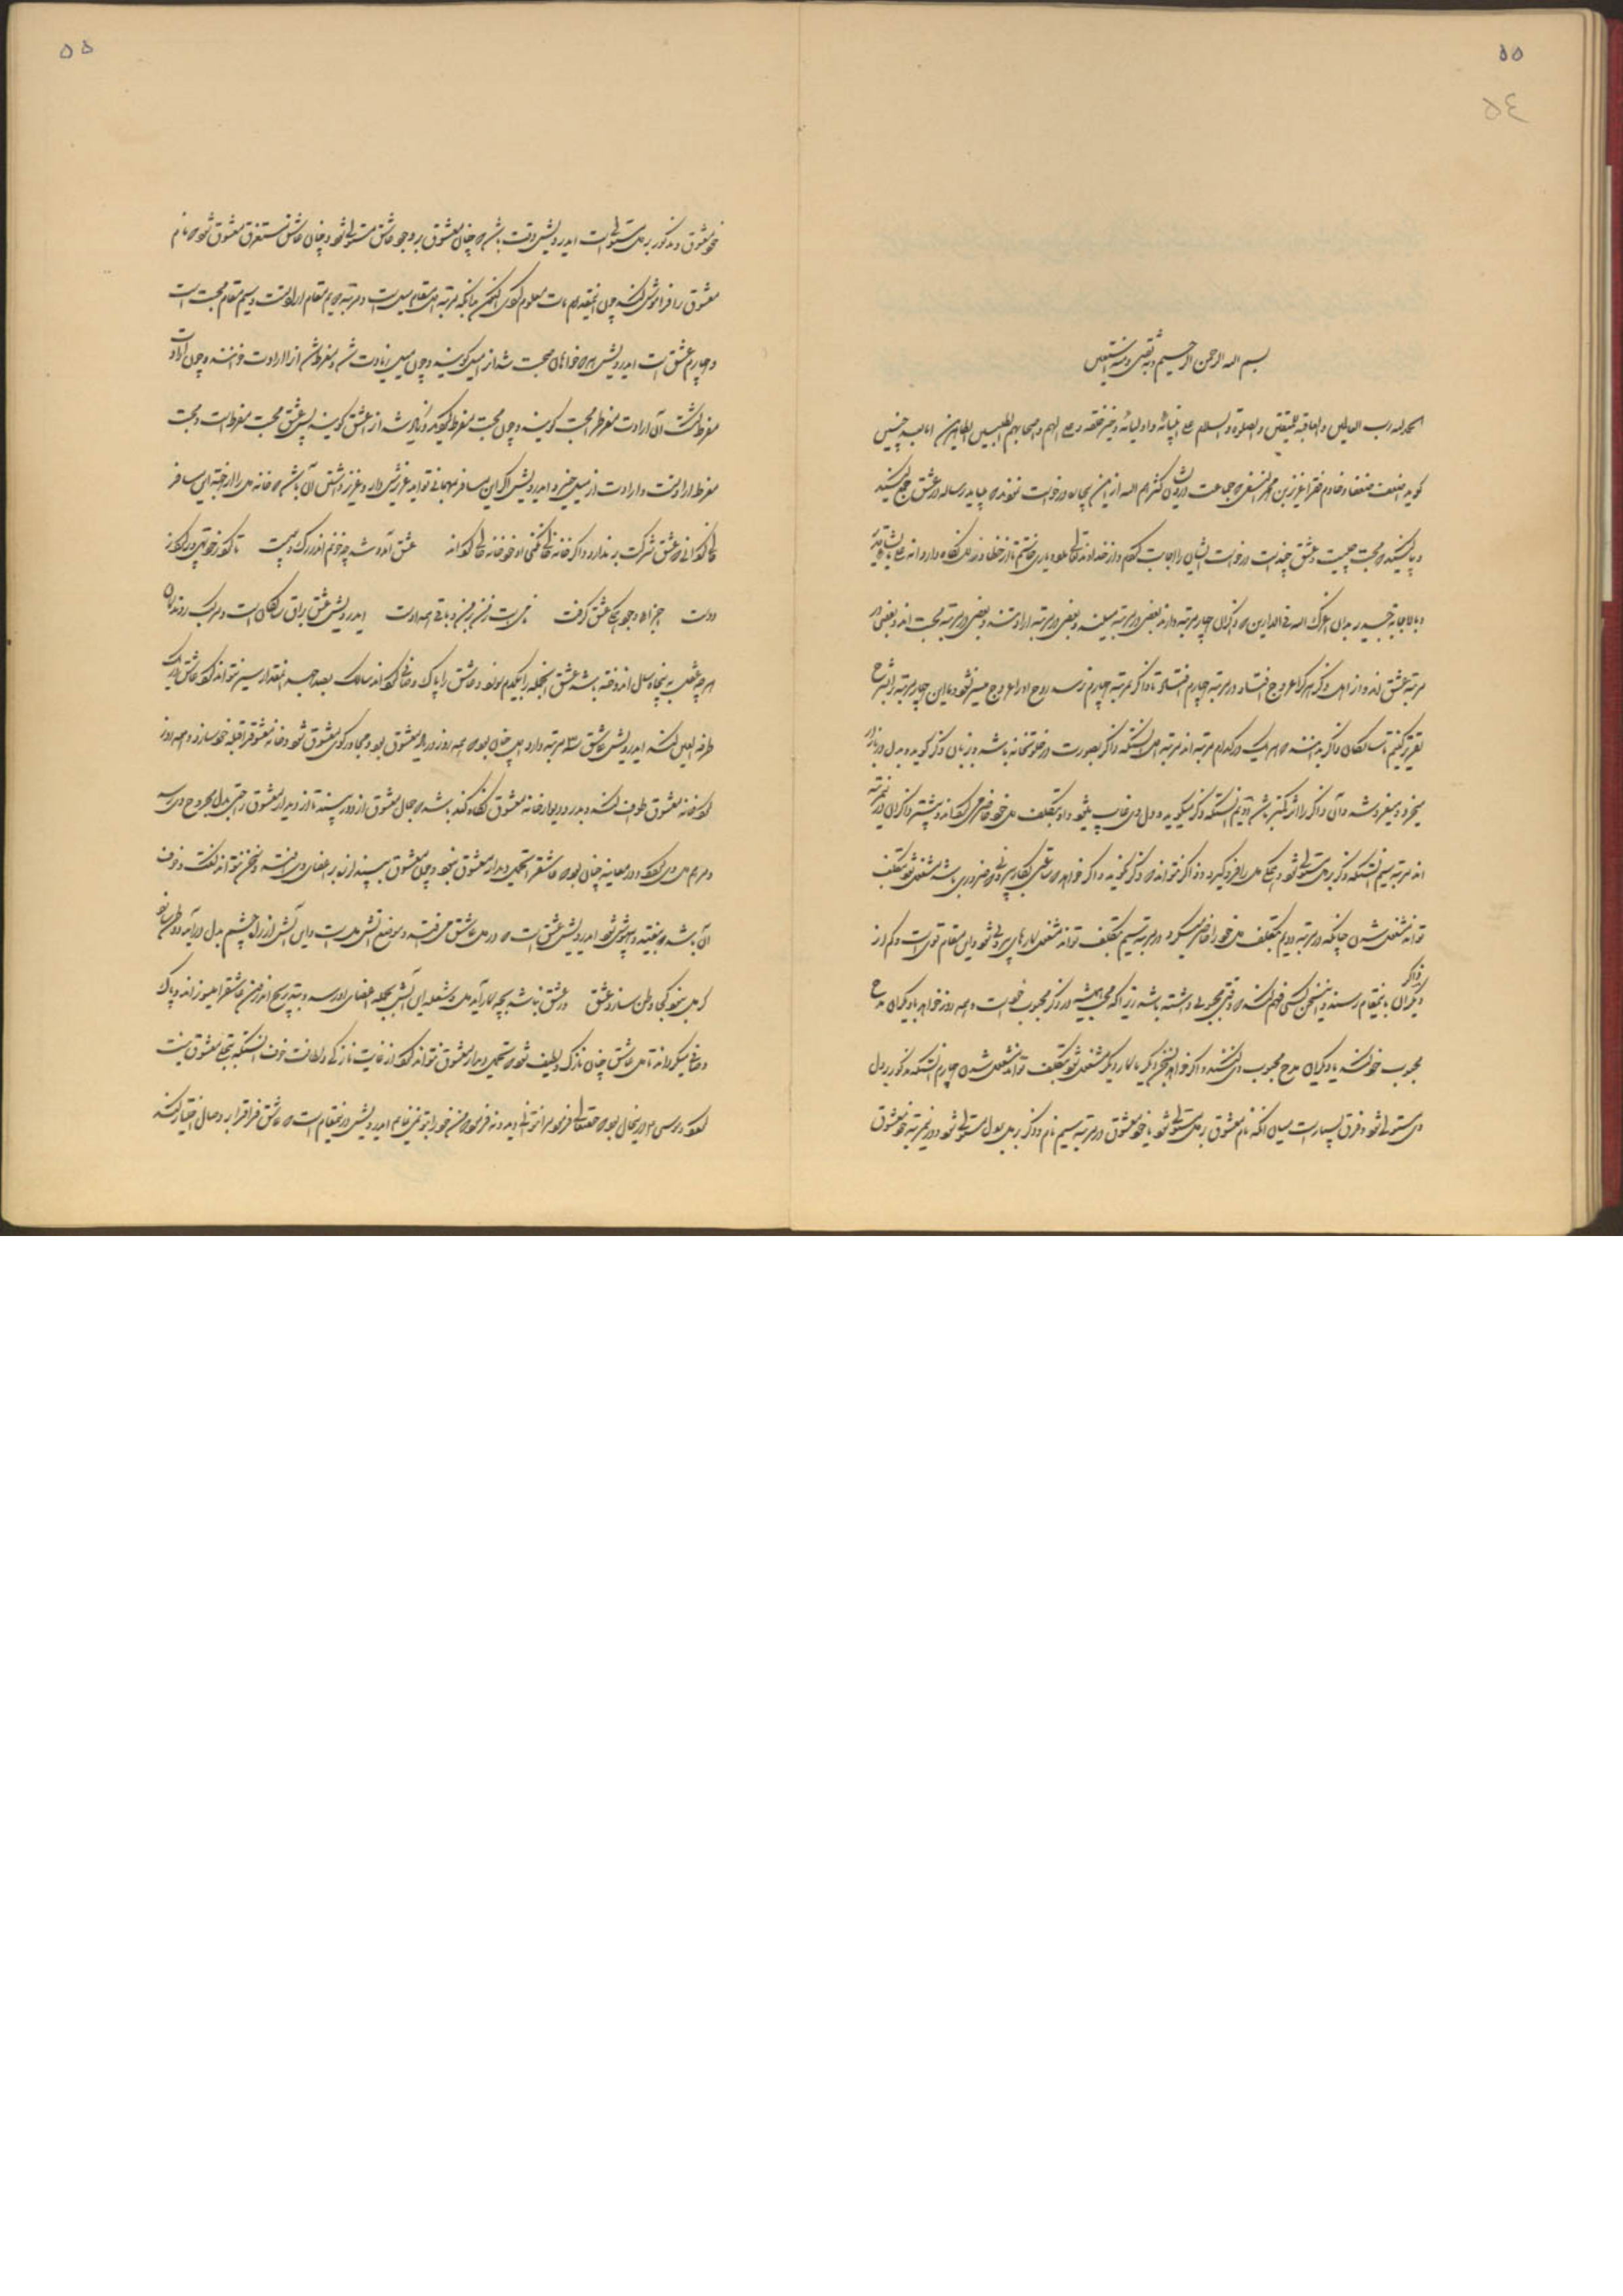 ۵۵
۵۴
بسم الله الرحمن الرحیم و به ثقتی و به نستعین
الحمد لله رب العالمین و العاقبة للمتقین و الصلوة و السلام علی انبیائه و اولیائه و خیر خلقه و علی الهم و اصحابهم الطیبین الطاهرین اما بعد چنین
گوید اضعف ضعفا و خادم فقرا عزیز بن محمد النسفی که جماعت درویشان کثرهم الله ازین بیچاره درخواست کردند که میباید رساله در عشق جمع کنید
و بیان کنید که محبت چیست و عشق چیست درخواست ایشان را اجابت کردم و از خداوند تعالی مدد و یاری خواستم تا از خطا و زلل نگاه دارد انه علی ما یشاء قدیر
و بالاجابة جدیر بدان اعزک الله فی الدارین که ذاکران چهار مرتبه دارند بعضی در مرتبه میلند و بعضی در مرتبه ارادتند و بعضی در مرتبه محبت اند و بعضی در
مرتبه عشق اند و از اهل ذکر هر کرا عروج افتاد در مرتبه چهارم افتاد و تا ذاکر بمرتبه چهارم نرسد روح او را عروج میسر نشود و ما این چهار مرتبه را بشرح
تقریر کنیم تا سالکان ذاکر بدانند که هر یک در کدام مرتبه اند مرتبه اول آنستکه ذاکر بصورت در خلوتخانه باشد و بزبان ذکر گوید و بدل در بازار
میخرد و میفروشد و آن ذاکر را اثر کمتر باشد دویم آنستکه ذکر میگوید و دل وی غایب میشود و او بتکلف دل خود حاضر میگرداند و بیشتر ذاکران درین مرتبه
اند مرتبه سیم آنستکه ذکر بر دل مستولی شود و جمیع دل را فرو گیرد و ذاکر نتواند که ذکر نگوید و اگر خواهد که ساعتی بکار بیرونی که ضروری باشد مشغول شود بتکلف
تواند مشغول شدن چنانکه در مرتبه دویم بتکلف دل خود را حاضر میکرد در مرتبه سیم بتکلف تواند مشغول کارهای بیرونی شود و این مقام قربست و کم از
ذاکران باینمقام رسند و این سخن کسی فهم کند که وقتی محبوبی داشته باشد زیرا که محب همیشه در ذکر محبوب خود است و همه روز خواهد با دیگران مدح
محبوب خود کند یا دیگران مدح محبوب وی کنند و اگر خواهد بسخن دیگر یا کار دیگر مشغول شود بتکلف تواند مشغول شدن چهارم آنستکه مذکور بر دل
وی مستولی شود و فرق بسیار است میان آنکه نام معشوق بر دل مستولی شود یا خود معشوق در مرتبه سیم نام و ذکر بر دل مستولی شود و درین مرتبه خود معشوق
۵۵
خود معشوق و مذکور بر دل مستولی است ایدرویش وقت باشد که چنان معشوق بر وجود عاشق مستولی شود و چنان عاشق مستغرق معشوق شود که نام
معشوق را فراموش کند چون اینمقدمات معلوم کردی اکنون بدانکه مرتبه اول مقام میل است و مرتبه دویم مقام ارادتست و سیم مقام محبت است
و چهارم عشق است ایدرویش هر که خواهان صحبت شد از میل گویند و چون میل زیادت شد و مفرط شد از ارادت خوانند و چون ارادت
مفرط گشت آن ارادت مفرط را محبت گویند و چون محبت مفرط گردد و زیادت شد از عشق گویند پس عشق محبت مفرط است و محبت
مفرط ارادتست و ارادت از میل خیزد ایدرویش اگر این مسافر بمهمانی تو آید عزیزش دار و عزیز داشتن آن باشد که خانه دل را از جهت این مسافر
خالی گردانی که عشق شرکت بر ندارد و اگر خانه خالی نکنی او خود خانه خالی گرداند عشق آمد و شد چو خونم اندر رگ و پوست تا کرد ز خود تهی و پر کرد ز
دوست اجزاء وجودم همگی عشق گرفت نامیست ز من بر من و باقی همه اوست ایدرویش عشق براق سالکان است و مرکب روندگان
هر چه عقل به پنجاه سال اندوخته باشد عشق آنجمله را بیکدم بسوزد و عاشق را پاک و صافی گرداند سالک بصد چله آنمقدار سیر نتواند کرد که عاشق در یک
طرفة العین کند ایدرویش عاشق سه مرتبه دارد اول چنان بود که همه روز در یاد معشوق بود و مجاور کوی معشوق شود و خانه معشوق را قبله خود سازد و همه روز
گرد خانه معشوق طواف کند و بدر و دیوار خانه معشوق نگاه کند باشد که جمال معشوق از دور بیند تا از دیدار معشوق راحتی بدل مجروح وی رسد
و مرهم دل وی گردد و در معاینه چنان بود که عاشق را تحمل دیدار معشوق نبود و چون معشوق ببیند لرزه بر اعضای وی افتد و سخن نتواند گفت و خوف
آن باشد که بیفتد و بیهوش شود ایدرویش عشق آتش است که در دل عاشق می افتد و موضع آتش دل است و این آتش از راه چشم بدل در آید و وطن سازد
گر دل نبود کجا وطن سازد عشق ور عشق نباشد بچه کار آید دل و شعله این آتش بجمله اعضای او رسد و بتدریج اندرون عاشق را میسوزاند و پاک
و صافی میگرداند تا دل عاشق چنان نازک و لطیف شود که تحمل دیدار معشوق نتواند کرد از غایت نازکی و لطافت خوف آنستکه بتجلی معشوق نیست